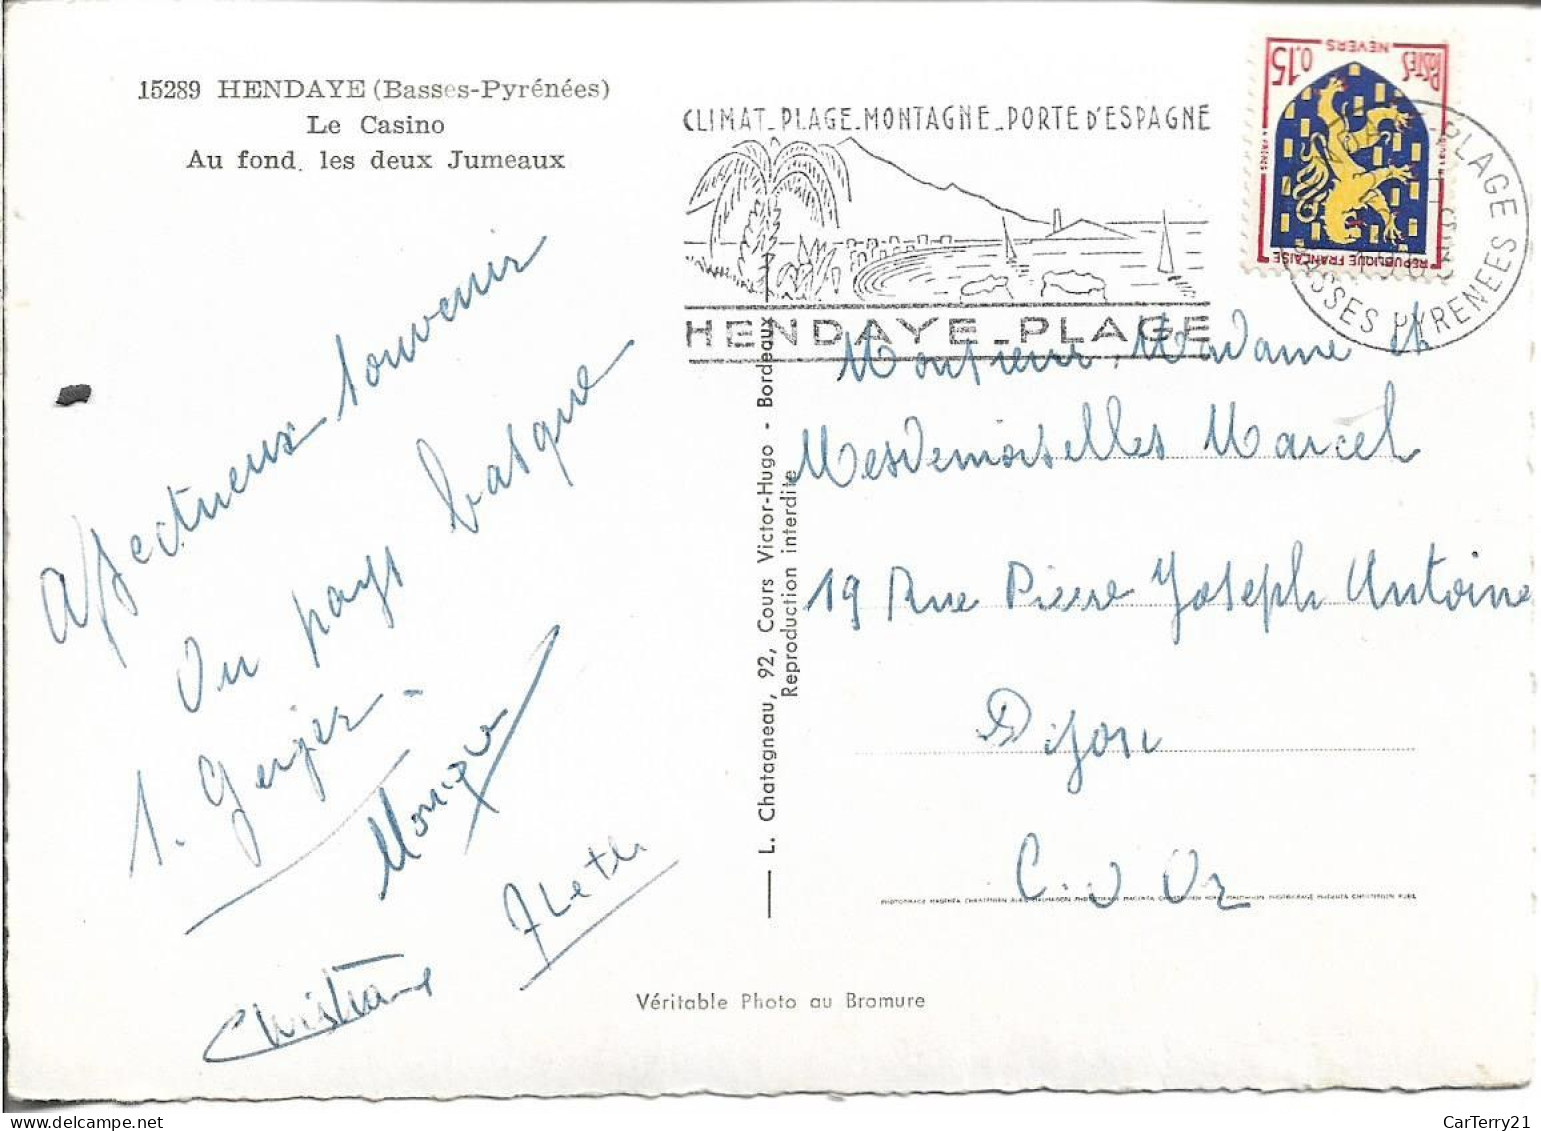 15289 HENDAYE (Basses-Pyrénées)
Le Casino
Au fond, les deux Jumeaux
CLIMAT_PLAGE_MONTAGNE_PORTE D'ESPAGNE
HENDAYE_PLAGE
0.15
NEVERS
POSTES
REPUBLIQUE FRANÇAISE
HENDAYE-PLAGE
BASSES PYRENEES
Affectueux souvenir
Du pays basque
Monique
Aleth
Christiane
L. Chatagneau, 92, Cours Victor-Hugo - Bordeaux
Reproduction interdite
Monsieur, Madame et
Mesdemoiselles Marcel
19 Rue Pierre Joseph Antoine
Dijon
C. d'Or
Véritable Photo au Bromure
CarTerry21